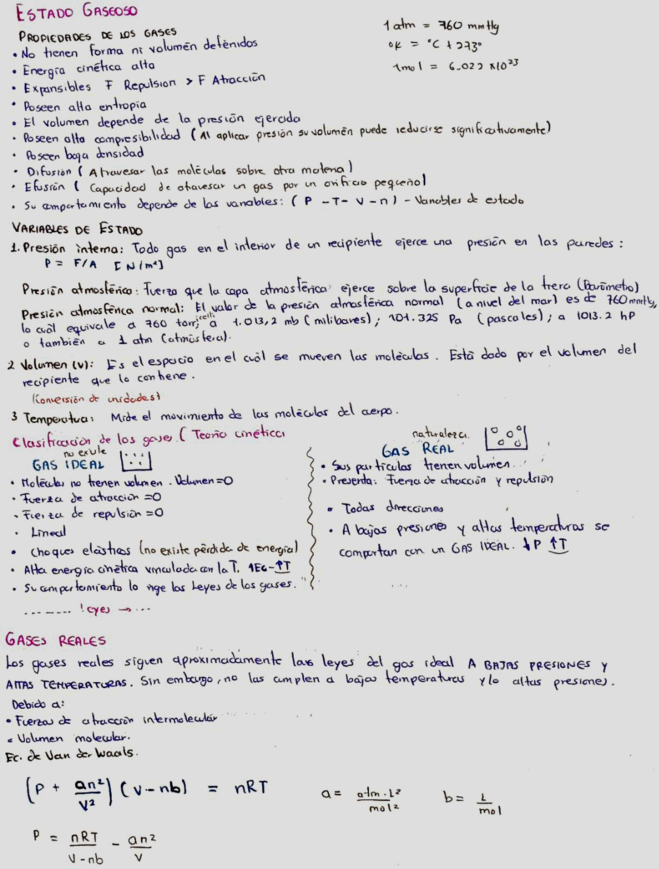 ESTADO GASEOSO
1 atm = 760 mmHg
PROPIEDADES DE LOS GASES
°K = °C + 273°
• No tienen forma ni volumen definidos
1mol = 6.022 x10²³
• Energía cinética alta
• Expansibles F Repulsion > F Atracción
• Poseen alta entropia
• El volumen depende de la presión ejercida
• Poseen alta compresibilidad (Al aplicar presión su volumen puede reducirse significativamente)
• Poseen baja densidad
• Difusión (Atravesar las moléculas sobre otra materia)
• Efusión ( Capacidad de atravesar un gas por un orificio pequeño)
• Su comportamiento depende de las variables: ( P - T - V - n ) - Variables de estado
VARIABLES DE ESTADO
1. Presión interna: Todo gas en el interior de un recipiente ejerce una presión en las paredes:
P = F/A [N/m²]
Presión atmosférica: Fuerza que la capa atmosférica ejerce sobre la superficie de la tierra (Barómetro)
Presión atmosférica normal: El valor de la presión atmosférica normal (a nivel del mar) es de 760 mmHg,
lo cuál equivale a 760 torricelli a 1.013,2 mb (milibares); 101.325 Pa (pascales); a 1013.2 hP
o también a 1 atm (atmósfera).
2 Volumen (v): Es el espacio en el cuál se mueven las moléculas. Está dado por el volumen del
recipiente que lo contiene.
(Conversión de unidades)
3 Temperatura: Mide el movimiento de las moléculas del cuerpo.
Clasificación de los gases ( Teoría cinética
no existe
GAS IDEAL
• Moléculas no tienen volumen. Volumen = 0
• Fuerza de atracción = 0
• Fuerza de repulsión = 0
• Lineal
• choques elásticos (no existe pérdida de energía)
• Alta energía cinética vinculada con la T. ↑Ec - ↑T
• Su comportamiento lo rige las Leyes de los gases.
leyes → ...
naturaleza.
GAS REAL
• Sus partículas tienen volumen.
• Presenta: Fuerza de atracción y repulsión
• Todas direcciones
• A bajas presiones y altas temperaturas se
comportan con un GAS IDEAL. ↓P ↑T
GASES REALES
Los gases reales siguen aproximadamente las leyes del gas ideal A BAJAS PRESIONES Y
ALTAS TEMPERATURAS. Sin embargo, no las cumplen a bajas temperaturas y/o altas presiones.
Debido a:
• Fuerzas de atracción intermolecular
• Volumen molecular.
Ec. de Van der Waals.
(P + an²/V²) (V - nb) = nRT a = atm · L²/mol² b = L/mol
P = nRT/V - nb - an²/V